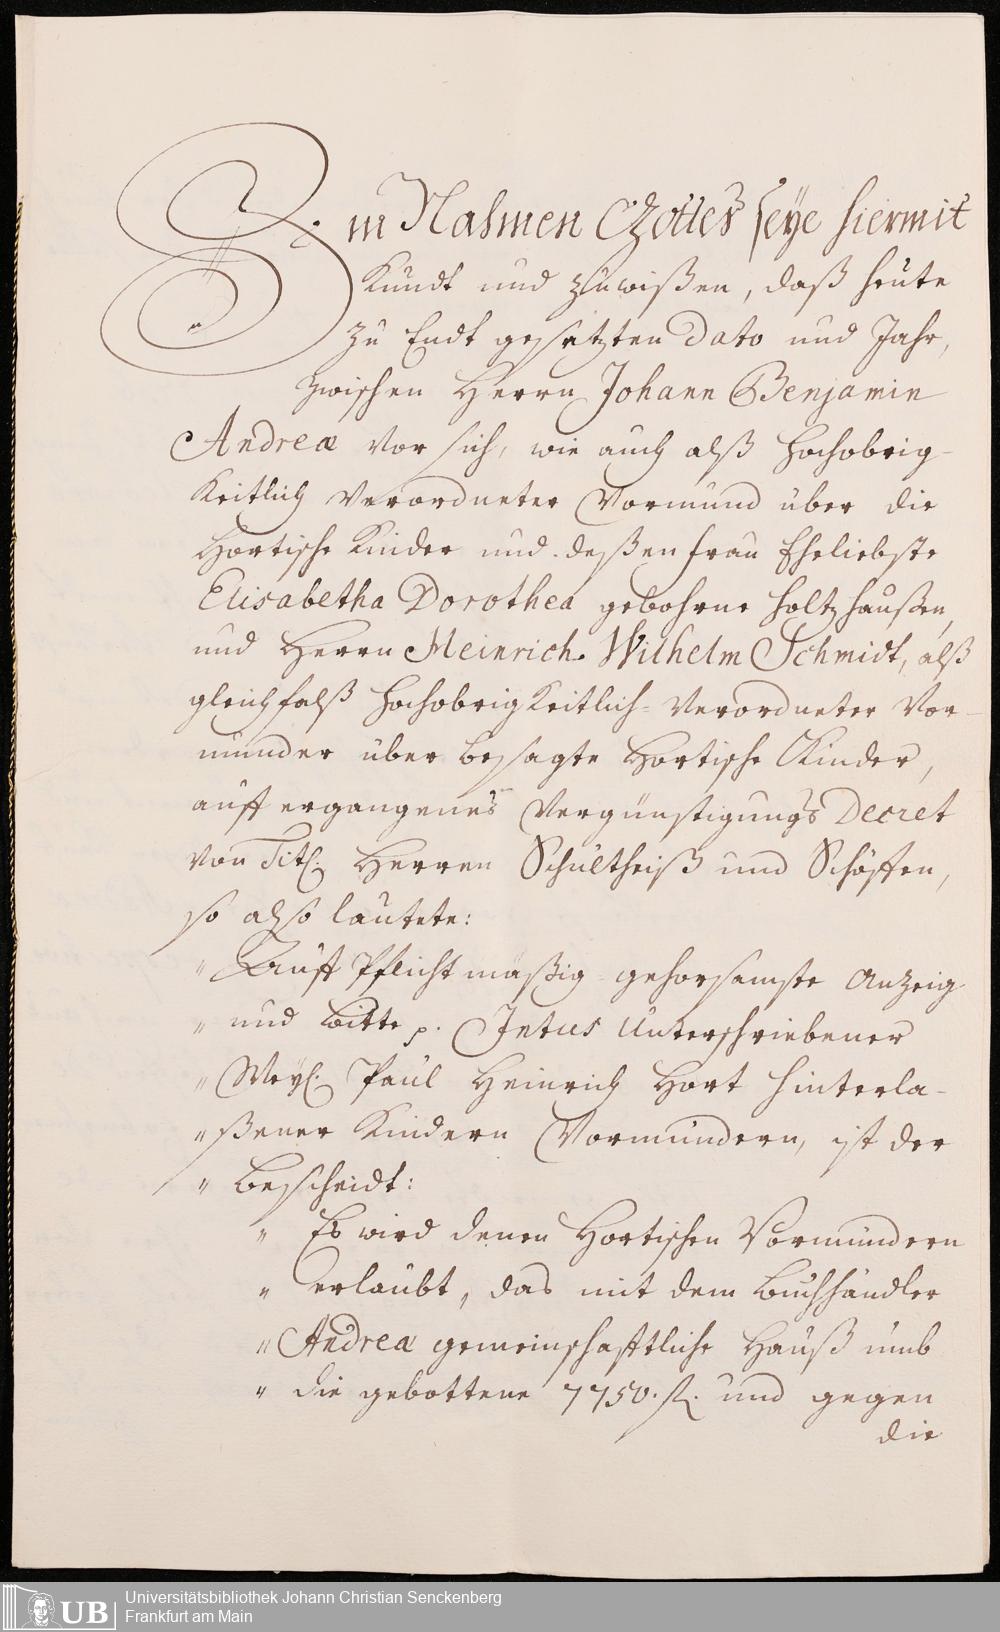 Im Nahmen Gottes seye hiermit
Kundt und zu wißen, daß heute
zu Endt gesetzten Dato und Jahr,
zwischen Herrn Johann Benjamin
Andreæ vor sich, wie auch alß hochobrig-
keitlich verordneter Vormund über die
Hortische Kinder und deßen frau Eheliebste
Elisabetha Dorothea gebohrne Holtzhaußen,
und Herrn Heinrich Wilhelm Schmidt, alß
gleichfalß hochobrigkeitlich verordneter Vor-
münder über besagte Hortische Kinder,
auff ergangenes Vergünstigungs Decret
von Titl. Herren Schultheiß und Schöffen,
so also lautete:
" Auff Pflichtmäßig gehorsamste Anzeig
" und Bitte p. Intus Unterschriebener
" Weyl. Paul Heinrich Hort hinterla-
" ßener Kindern Vormündern, ist der
" Bescheidt:
" Es wird denen Hortischen Vormündern
" erlaubt, das mit dem Buchhändler
" Andreæ gemeinschafftliche Hauß umb
" die gebottene 7750. fl. und gegen
die
UB
Universitätsbibliothek Johann Christian Senckenberg
Frankfurt am Main